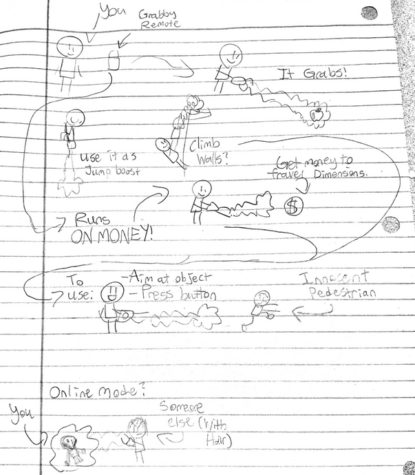 You
Grabby
Remote
It Grabs!
use it as
Jump boost
Climb
Walls?
Get money to
travel Dimensions.
$
Runs
ON MONEY!
To
use:
-Aim at object
-Press button
Innocent
Pedestrian
Online mode?
You
Someone
else (With
Hair)